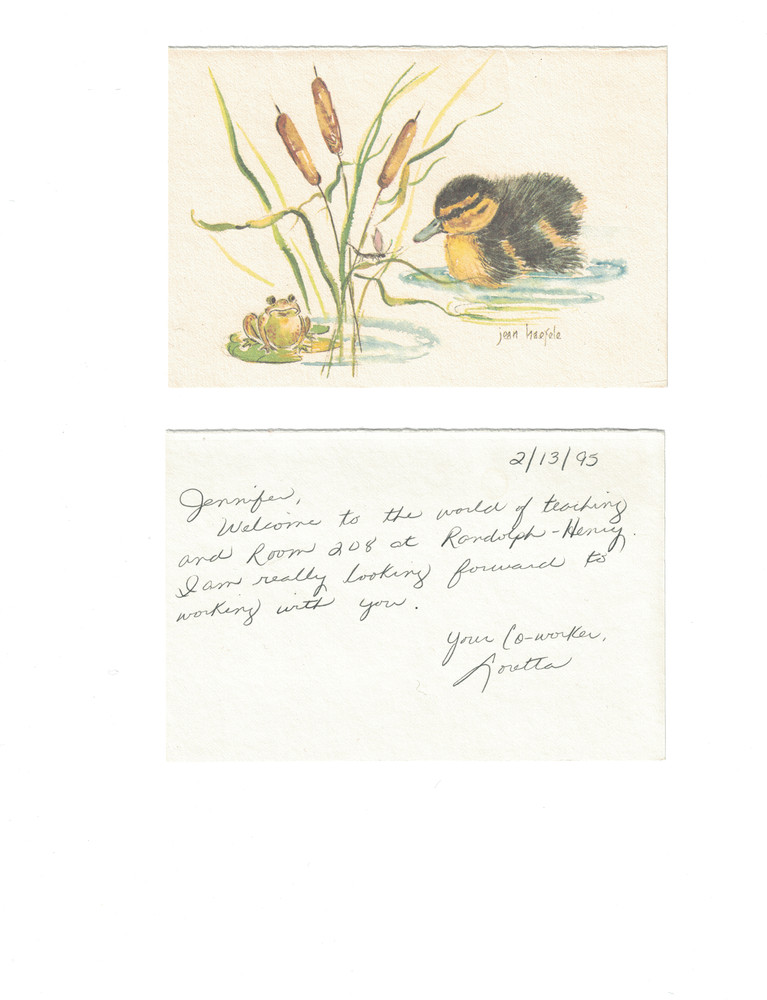 jean haefele
2/13/95
Jennifer,
Welcome to the world of teaching
and Room 208 at Randolph-Henry.
I am really looking forward to
working with you.
Your Co-worker,
Loretta